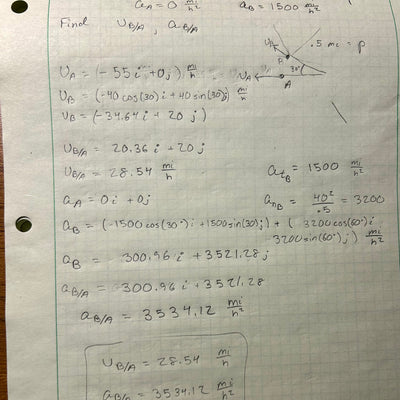 a_A = 0 mi/h² a_B = 1500 mi/h²
Find U_B/A, a_B/A
.5 mi = p
B
30°
U_A
A
U_A = (-55i + 0j) mi/h
U_B = (-40cos(30)i + 40sin(30)j) mi/h
U_B = (-34.64i + 20j)
U_B/A = 20.36i + 20j
U_B/A = 28.54 mi/h
a_tB = 1500 mi/h²
a_A = 0i + 0j
a_nB = 40²/.5 = 3200
a_B = (-1500cos(30°)i + 1500sin(30)j) + (3200cos(60°)i
-3200sin(60°)j) mi/h²
a_B = 300.96i + 3521.28j
a_B/A = 300.96i + 3521.28
a_B/A = 3534.12 mi/h²
U_B/A = 28.54 mi/h
a_B/A = 3534.12 mi/h²